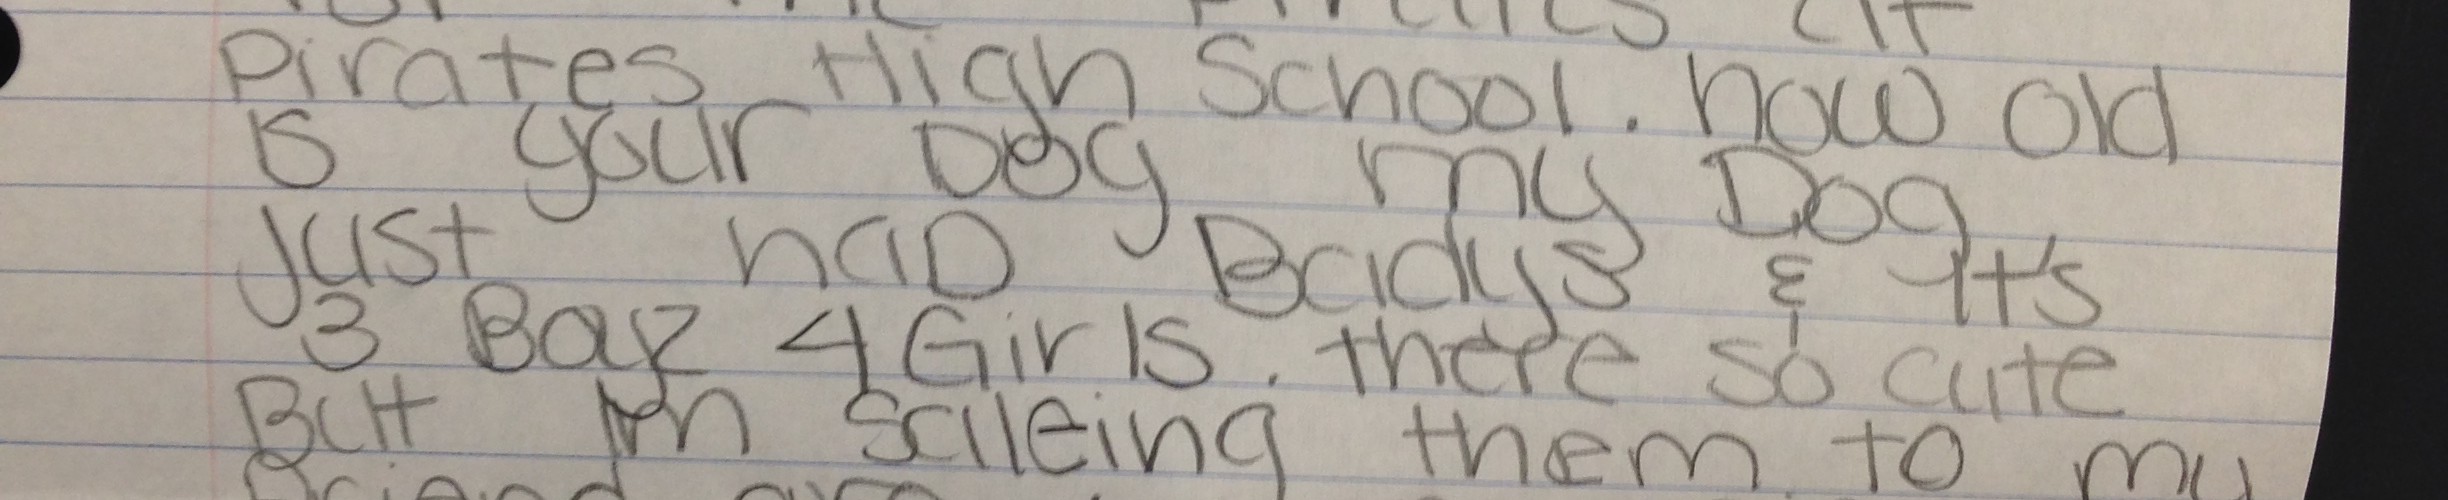 Pirates High School. how old
is your Dog my Dog
just had Badys & It's
3 Boyz 4 Girls. there so cute
But Im salleing them to my